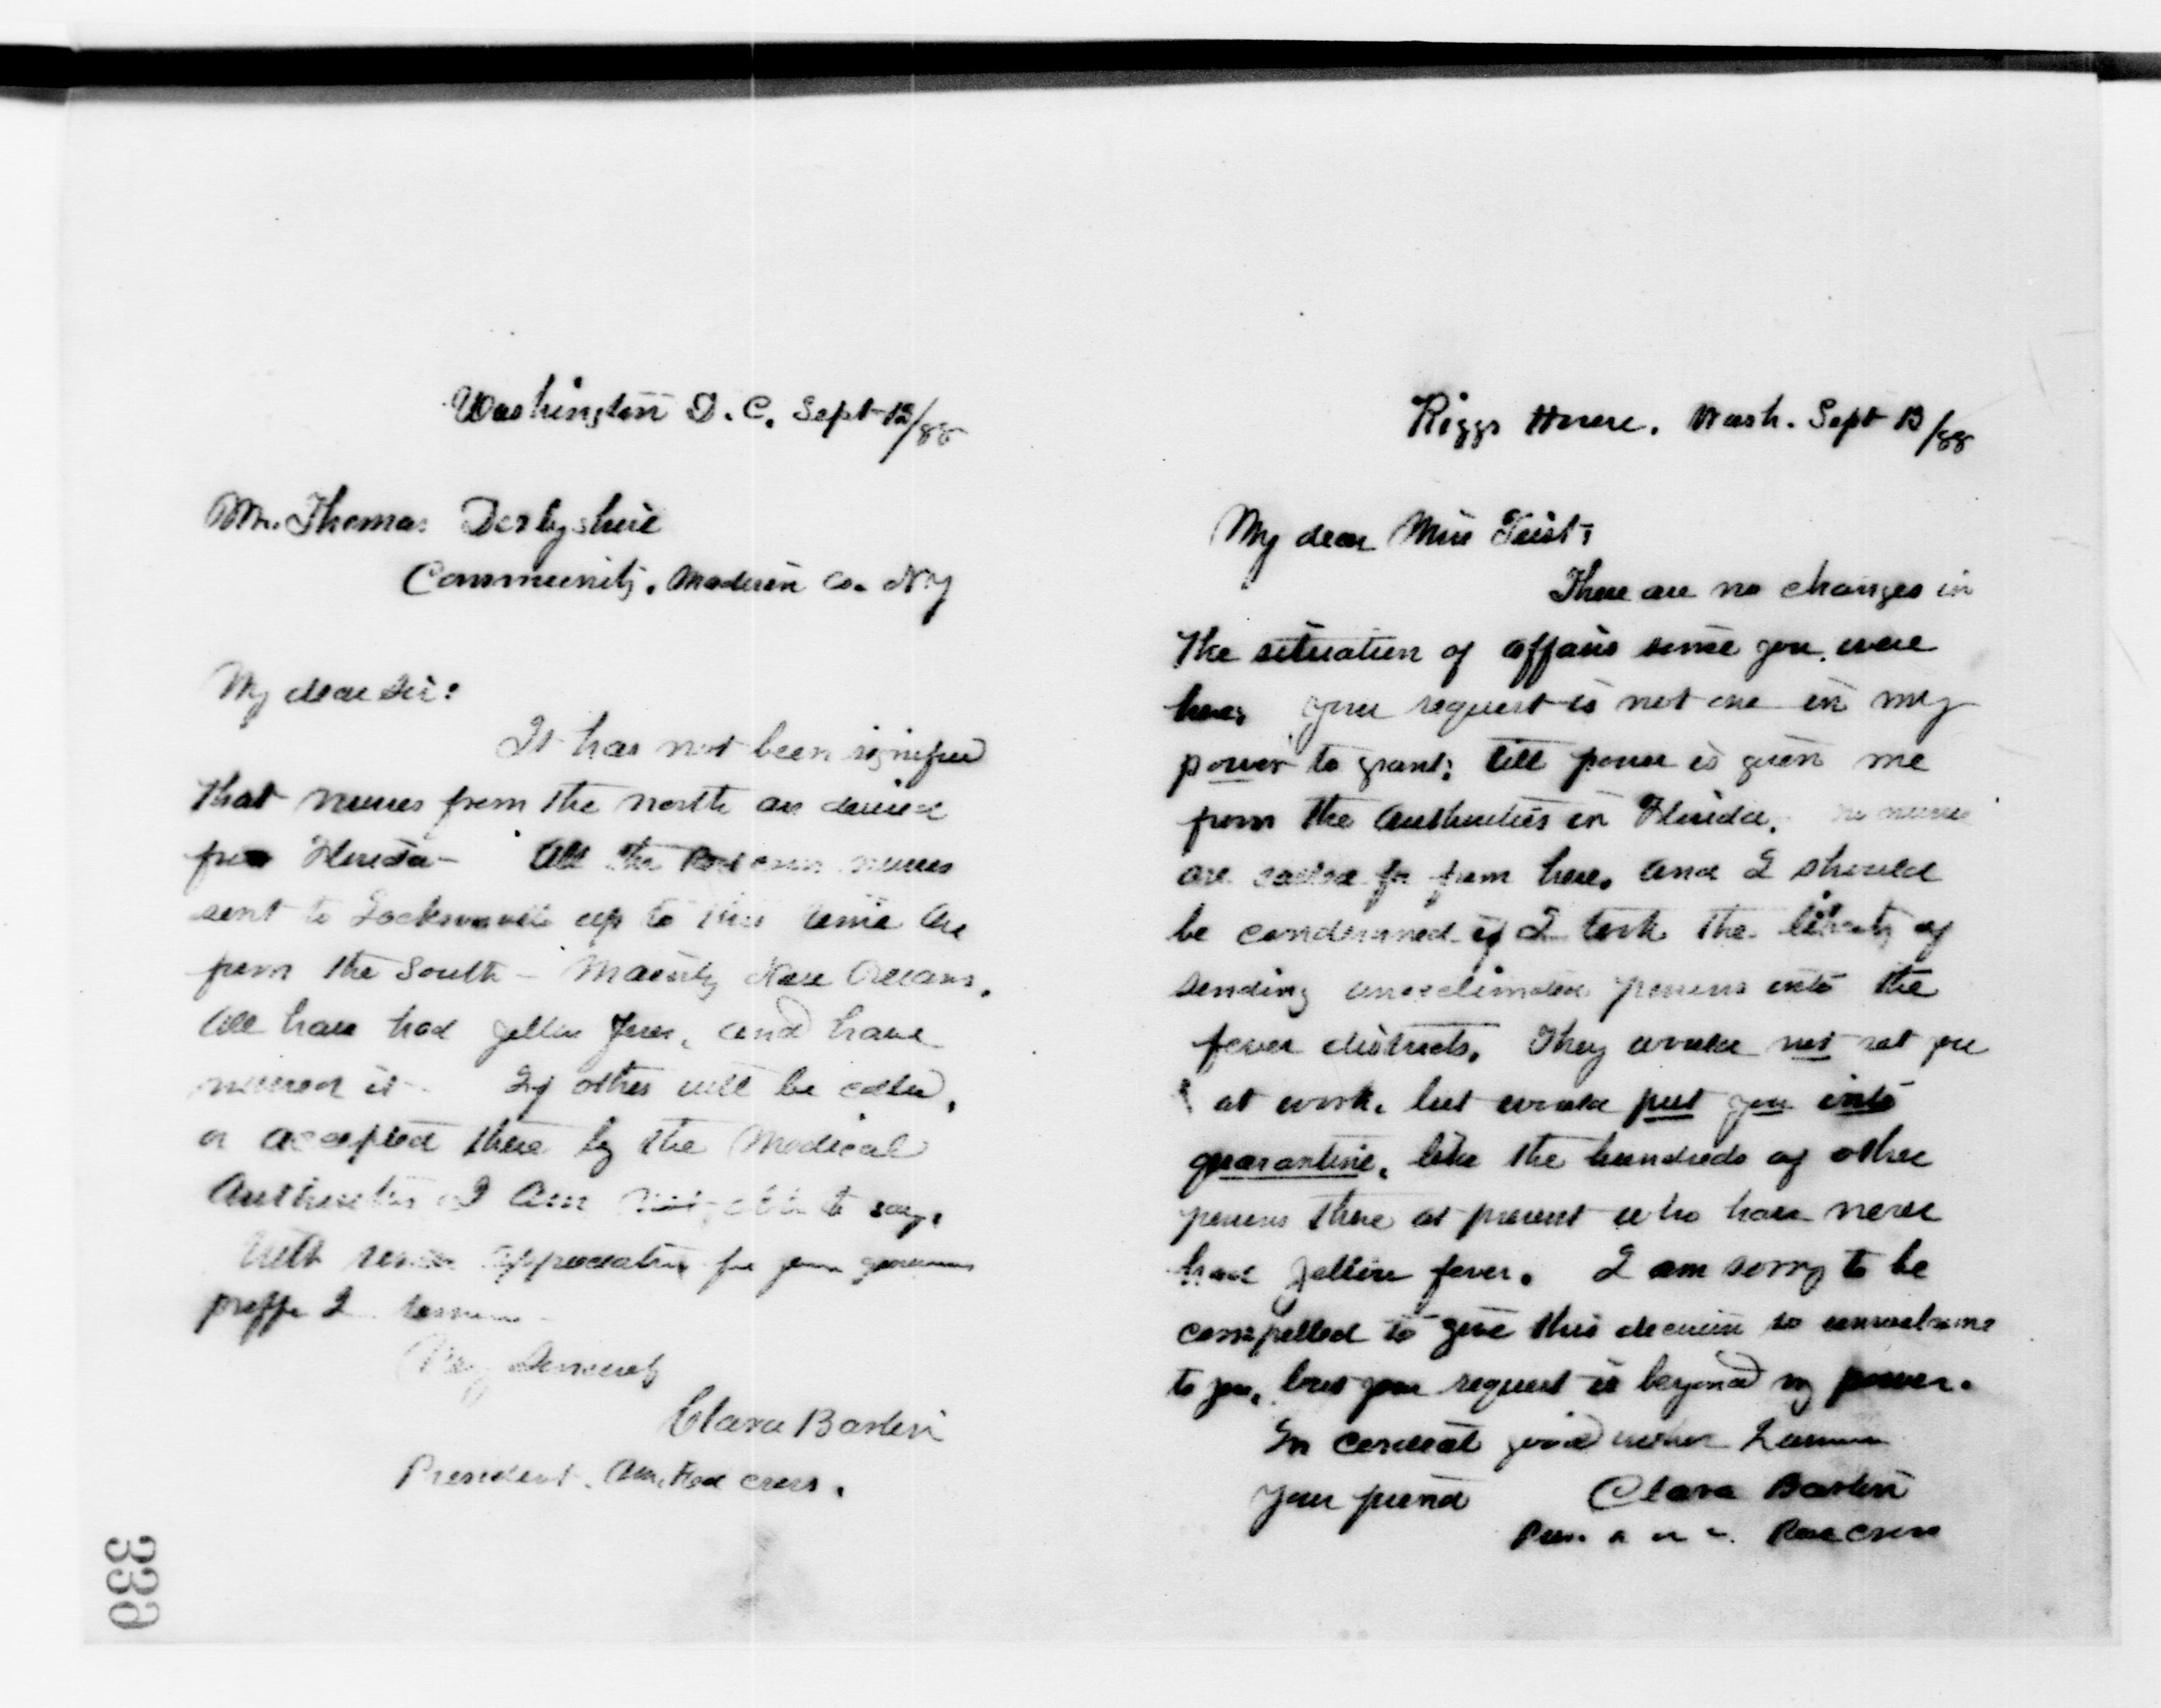 Washington D.C. Sept 12/88
Mr. Thomas Derbyshire
Community. Madison Co. N.Y
My dear Sir:
It has not been signified
that nurses from the north are desired
from Florida - All the Red Cross nurses
sent to Jacksonville up to this time are
from the South - Mainly New Orleans.
All have had yellow fever, and have
nursed it - If others will be called,
or accepted there by the Medical
Authorities I am not able to say.
With appreciation for your generous
proffer I remain
Very Sincerely
Clara Barton
President. Am. Red Cross.
339
Riggs House. Wash. Sept 13/88
My dear Miss
There are no changes in
the situation of affairs since you were
here, your request is not one in my
power to grant; till power is given me
from the authorities in Florida. no nurses
are called for from here. and I should
be condemned if I took the liberty of
sending unacclimated persons into the
fever districts. They would not set you
at work. but would put you into
quarantine, like the hundreds of other
persons there at present who have never
had yellow fever. I am sorry to be
compelled to give this decision so unwelcome
to you, but your request is beyond my power.
In cordial good wishes I remain
Your friend Clara Barton
Pres. Red Cross